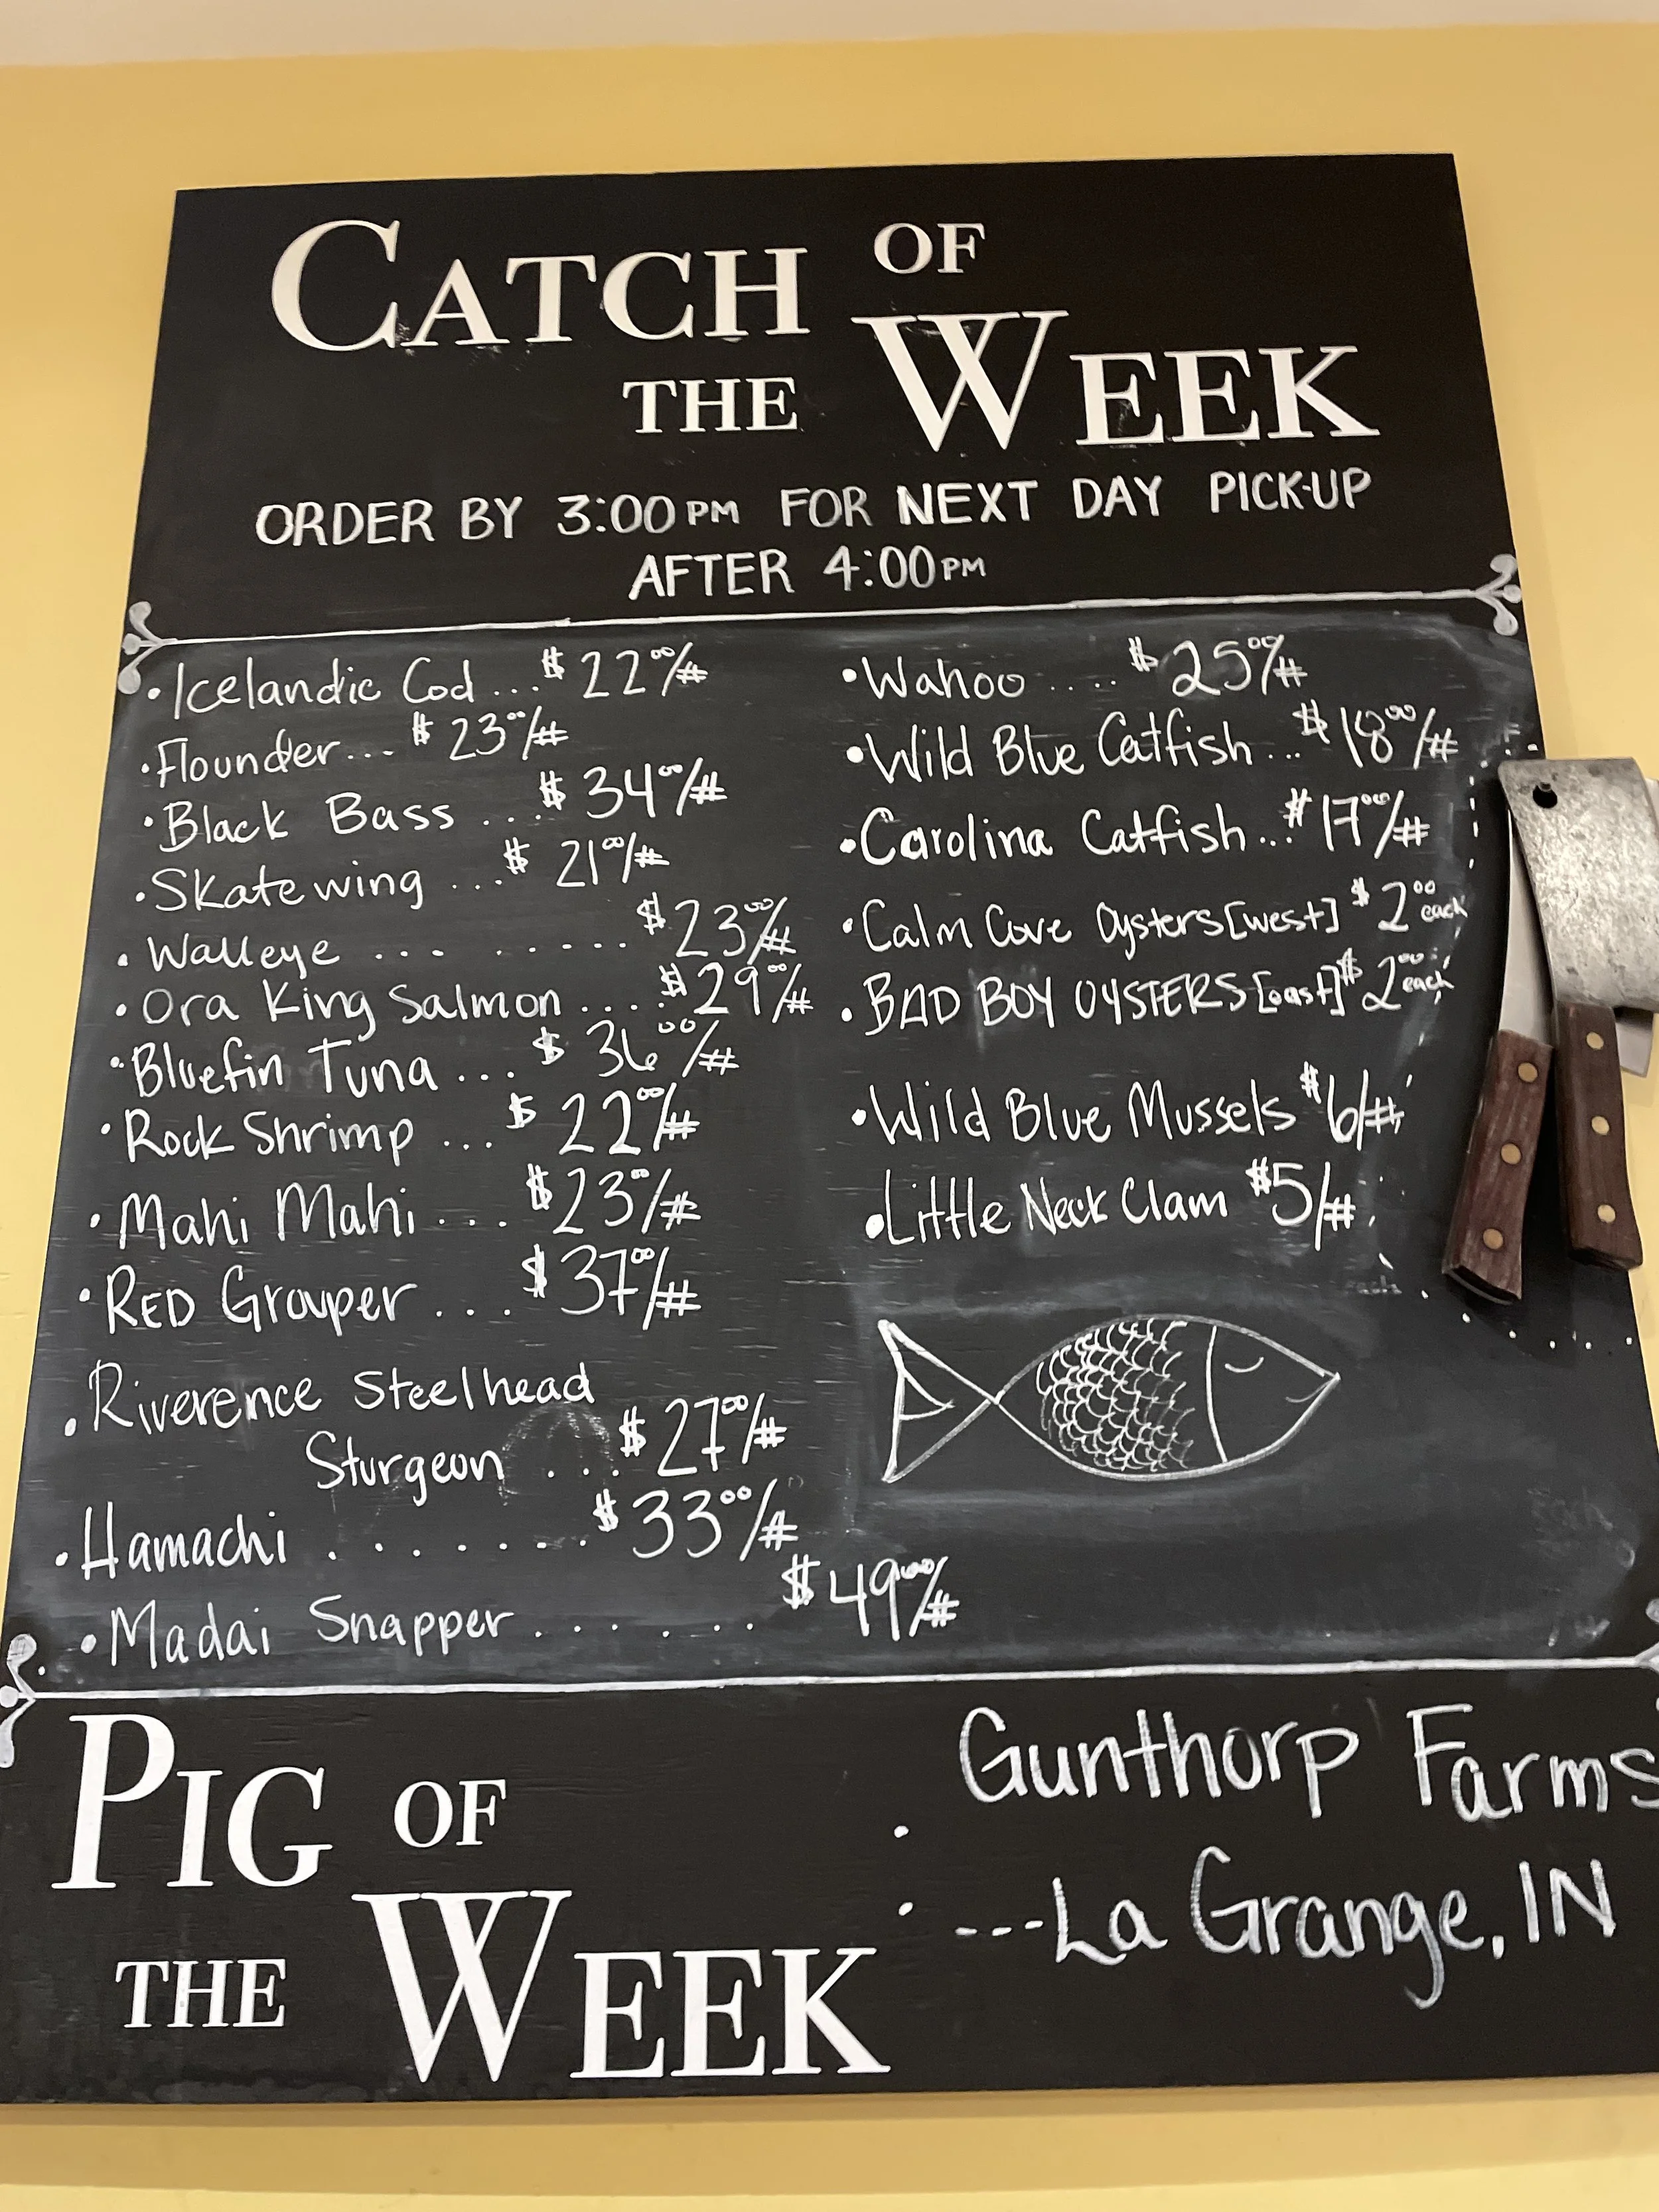 CATCH OF
THE WEEK
ORDER BY 3:00PM FOR NEXT DAY PICK-UP
AFTER 4:00PM
•Icelandic Cod ... $22⁰⁰/#
•Flounder... $23⁰⁰/#
•Black Bass .... $34⁰⁰/#
•Skate wing ... $21⁰⁰/#
•Walleye ... ...... $23⁰⁰/#
•Ora King Salmon .... $29⁰⁰/#
•Bluefin Tuna ... $36⁰⁰/#
•Rock Shrimp ... $22⁰⁰/#
•Mahi Mahi ... $23⁰⁰/#
•RED Grouper ... $37⁰⁰/#
•Riverence Steelhead
Sturgeon ... $27⁰⁰/#
•Hamachi ........ $33⁰⁰/#
•Madai Snapper ...... $49⁰⁰/#
•Wahoo .... $25⁰⁰/#
•Wild Blue Catfish ... $18⁰⁰/#
•Carolina Catfish... $17⁰⁰/#
•Calm Cove Oysters[west] $2⁰⁰ each
•BAD BOY OYSTERS[east] $2⁰⁰ each
•Wild Blue Mussels $6/#
•Little Neck Clam $5/#
PIG OF
THE WEEK
: Gunthorp Farms
---La Grange, IN